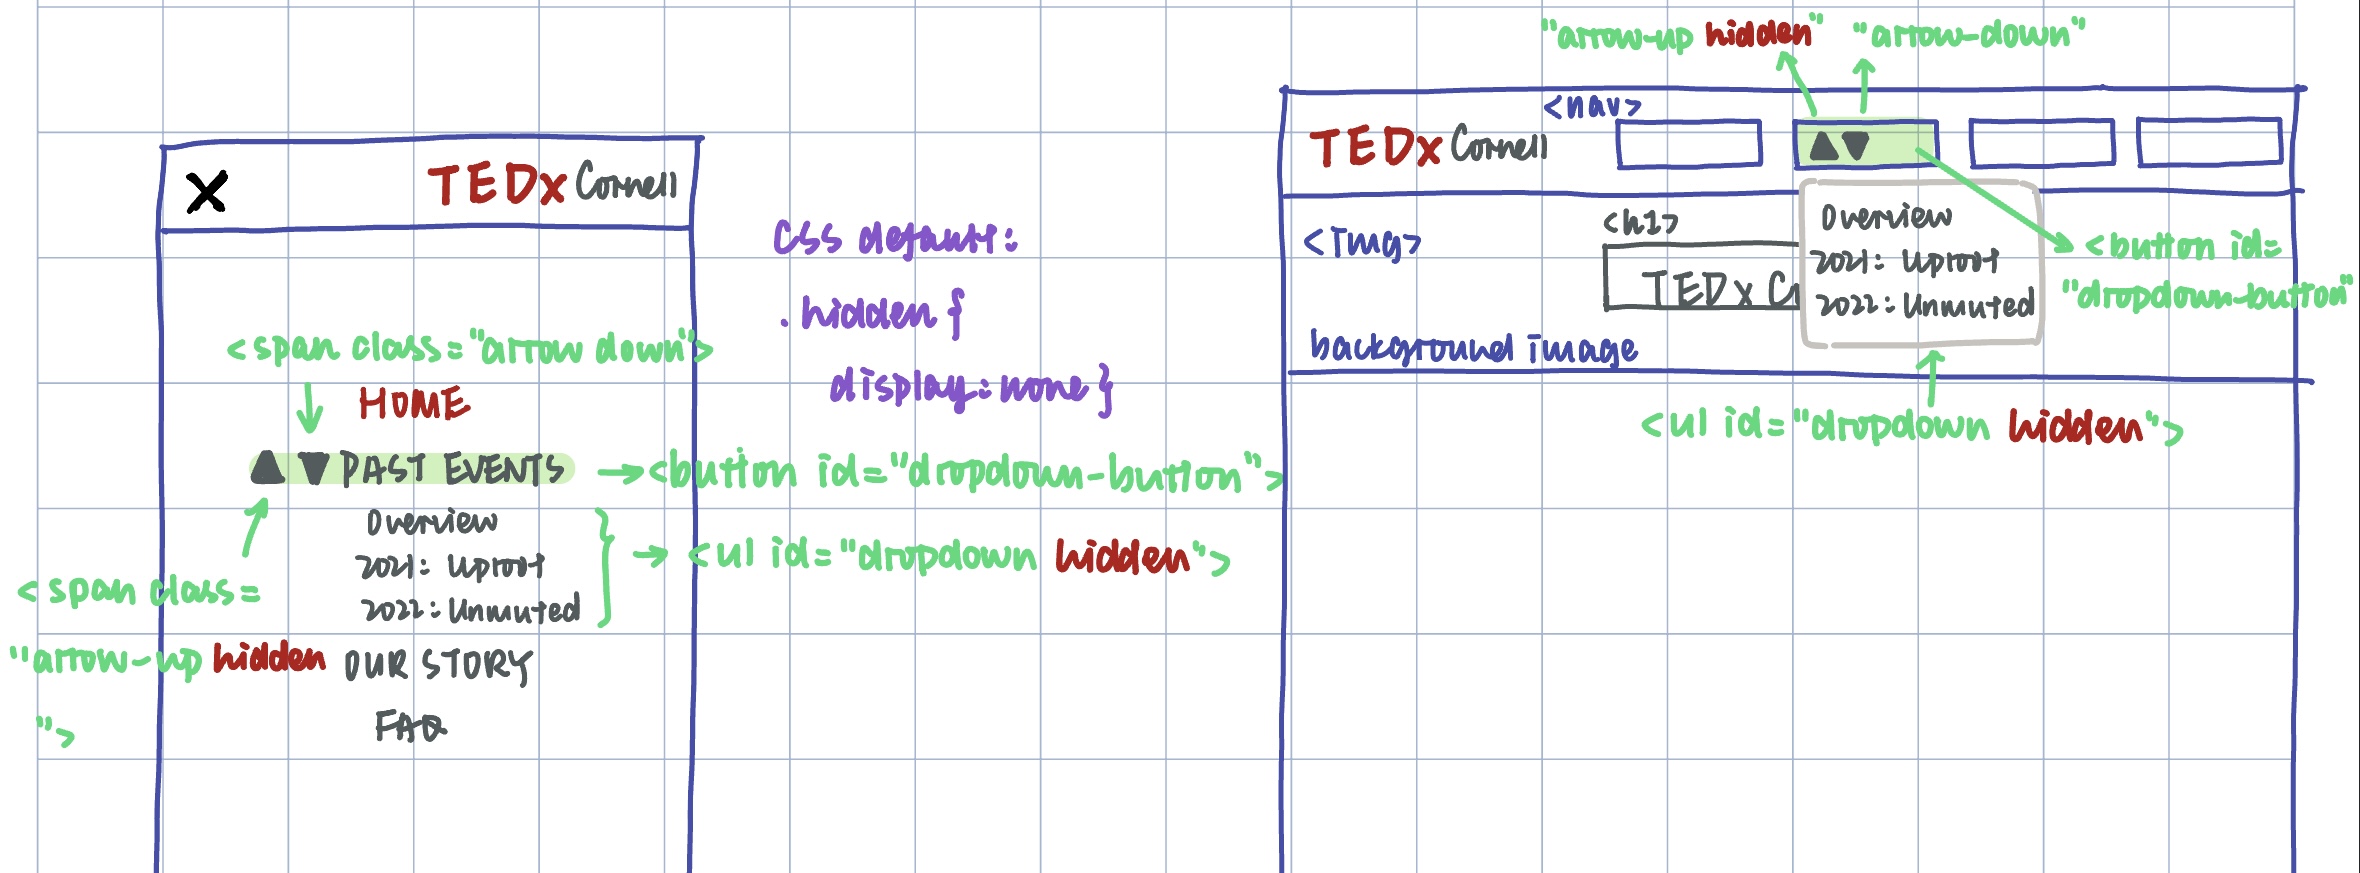 X
TEDx Cornell
<span class="arrow down">
HOME
PAST EVENTS
<button id="dropdown-button">
Overview
2021: Uproot
2022: Unmuted
<ul id="dropdown hidden">
<span class=
"arrow-up hidden
">
OUR STORY
FAQ
CSS default:
.hidden {
display: none }
"arrow-up hidden" "arrow-down"
<nav>
TEDx Cornell
<img>
<h1>
TEDx C
background image
Overview
2021: Uproot
2022: Unmuted
<button id=
"dropdown-button"
<ul id="dropdown hidden">